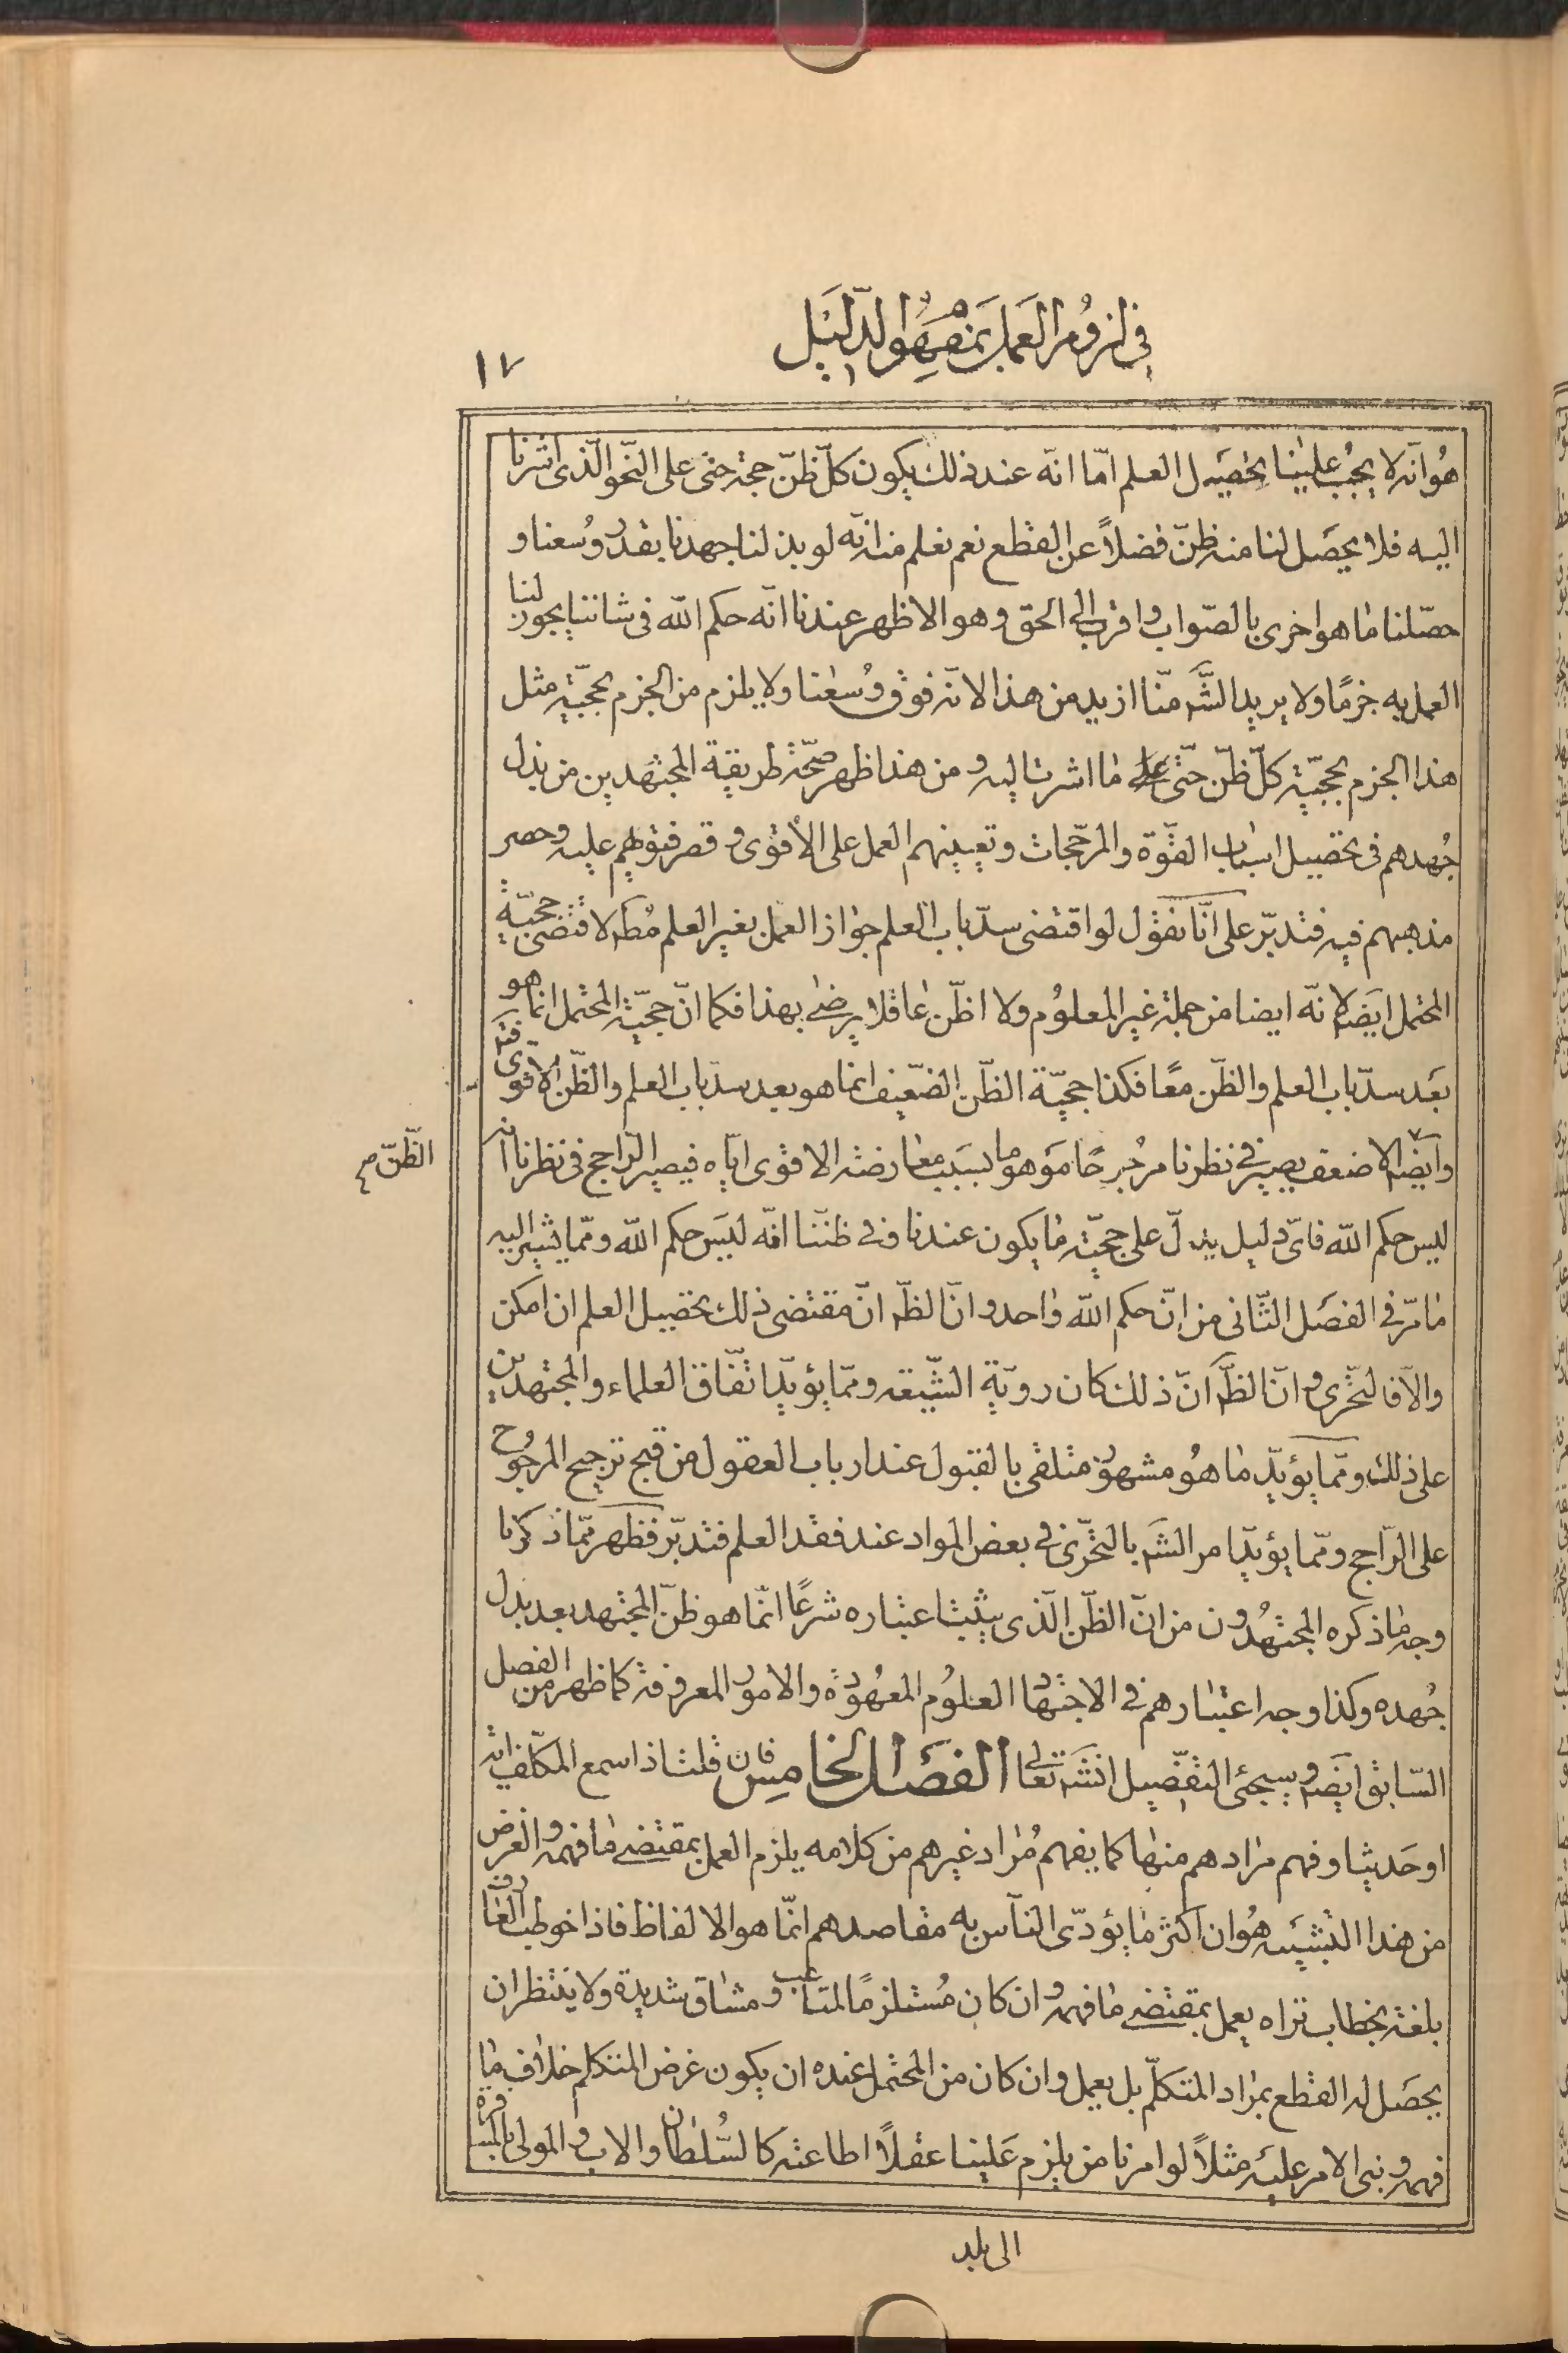 في لزوم العمل بمفهوم الدليل
١٧
هو انّه لا يجب علينا تحصيل العلم امّا انّه عند ذلك يكون كلّ ظنّ حجة حتى على النّحو الّذى اشرنا
اليه فلا يحصل لنا منه ظنّ فضلاً عن القطع نعم نعلم منه انّه لو بذلنا جهدنا بقدر وسعنا و
حصّلنا ما هو احرى بالصّواب واقرب الى الحق وهو الاظهر عندنا انّه حكم اللّه فى شاننا يجوز لنا
العمل به جزمًا ولا يريد الشّم منّا ازيد من هذا لانّه فوق وسعنا ولا يلزم من الجزم بحجّيّة مثل
هذا الجزم بحجّيّة كلّ ظنّ حتّى على ما اشرت اليه ومن هذا ظهر صحّة طريقة المجتهدين من بذل
جهدهم فى تحصيل اسباب القوّة والمرجّحات وتعيينهم العمل على الأقوى وقصر فتوهم عليه وحصر
مذهبهم فيه فتدبّر على انّا نقول لو اقتضى سدّ باب العلم جواز العمل بغير العلم مُطم لاقتضى حجيّة
المحتمل ايضم لانّه ايضا من جملة غير المعلوم ولا اظنّ عاقلا يرضى بهذا فكما انّ حجّيّة المحتمل انما هو
بعد سدّ باب العلم والظّن معًا فكذا حجيّة الظّن الضّعيف انما هو بعد سدّ باب العلم والظّن الاقوى فتم
وايضم الاضعف يصير فى نظرنا مرجوحًا موهوما بسبب معارضته الاقوى ايّاه فيصير الرّاجح فى نظرنا انه
الظّنّ م
ليس حكم اللّه فاىّ دليل يدلّ على حجيّة ما يكون عندنا وفى ظنّنا انّه ليس حكم اللّه وممّا يشير اليه
ما مرّ فى الفصل الثّانى من انّ حكم اللّه واحد وانّ الظّم انّ مقتضى ذلك تحصيل العلم ان امكن
والاّ فالتحّرى وانّ الظّم انّ ذلك كان رويّة الشّيعة وممّا يؤيّد اتّفاق العلماء والمجتهدين
على ذلك وممّا يؤيّد ما هو مشهور متلقى بالقبول عند ارباب العقول من قبح ترجيح المرجوح
على الرّاجح وممّا يؤيّد امر الشّم بالتحّرى فى بعض المواد عند فقد العلم فتدبّر فظهر ممّا ذكرنا
وجه ما ذكره المجتهدون من انّ الظّن الّذى يثبت اعتباره شرعًا انّما هو ظنّ المجتهد بعد بذل
جُهده وكذا وجه اعتبارهم فى الاجتهاد العلوم المعهودة والامور المعروفة كما ظهر من الفصل
السّابق ايضم وسيجئ التفصيل انشم تعالى الفصل الخامس فان قلت اذا سمع المكلّف اية
او حديثا وفهم مرادهم منها كما يفهم مُراد غيرهم من كلامه يلزم العمل بمقتضى ما فهمه والغرض
من هذا التشبيه هو ان اكثر ما يؤدّى النّاس به مقاصدهم انّما هو الالفاظ فاذا خوطب العارف
بلغة بخطاب تراه يعمل بمقتضى ما فهمه وان كان مُستلزمًا لمتاعب ومشاق شديدة ولا ينتظر ان
يحصل له القطع بمراد المتكلّم بل يعمل وان كان من المحتمل عنده ان يكون غرض المتكلم خلاف ما
فهمه وبنى الامر عليه مثلاً لو امرنا من يلزم علينا عقلاً اطاعته كالسُّلطان والاب والمولى بالمسافرة
الى بلد